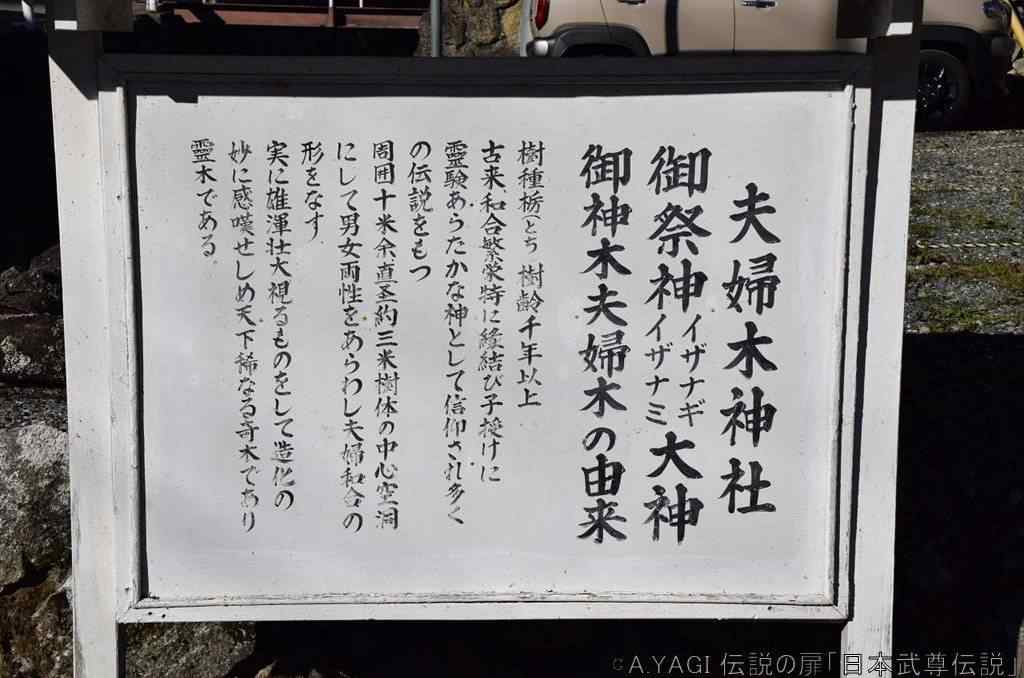 夫婦木神社
御祭神イザナギイザナミ大神
御神木夫婦木の由来
樹種栃(とち 樹齢千年以上
古来、和合繁栄特に縁結び子授けに
霊験あらたかな神として信仰され多く
の伝説をもつ
周囲十米余直圣約三米樹体の中心空洞
にして男女両性をあらわし夫婦和合の
形をなす
実に雄渾壮大視るものをして造化の
妙に感嘆せしめ天下稀なる奇木であり
霊木である。
©A.YAGI 伝説の扉「日本武尊伝説」